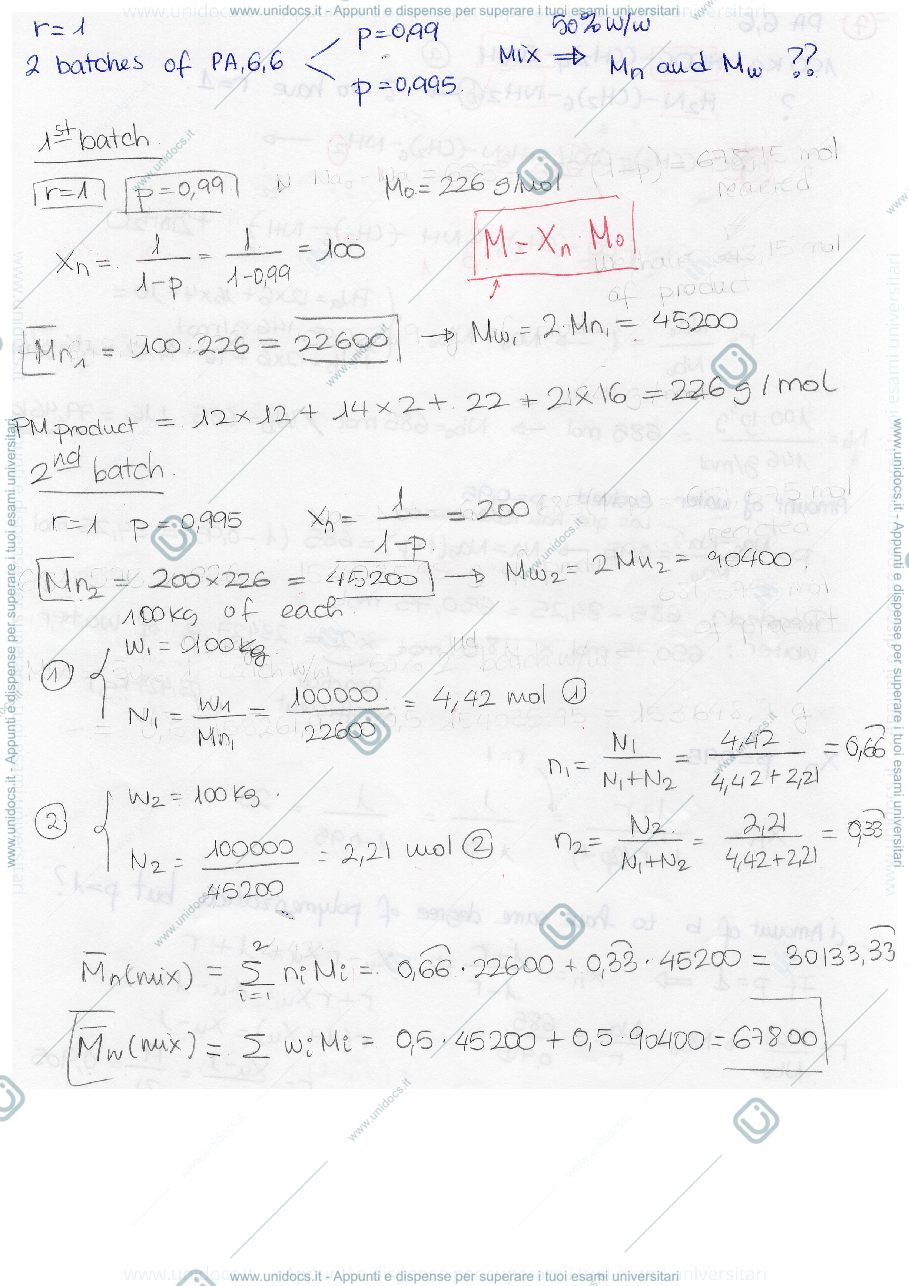 www.unidocs.it - Appunti e dispense per superare i tuoi esami universitari
r = 1
2 batches of PA,6,6
p = 0,99
p = 0,995
50% w/w
Mix ⇒ Mn and Mw ??
1st batch.
r=1 p=0,99 M0 = 226 g/mol
Xn = 1/(1-p) = 1/(1-0,99) = 100
M = Xn · M0
Mn1 = 100·226 = 22600 → Mw1 = 2·Mn1 = 45200
PM product = 12×12 + 14×2 + 22 + 2×16 = 226 g/mol
2nd batch.
r=1 p=0,995 Xn = 1/(1-p) = 200
Mn2 = 200×226 = 45200 → Mw2 = 2Mn2 = 90400
100kg of each
① W1 = 100kg.
N1 = W1/Mn1 = 100000/22600 = 4,42 mol ①
n1 = N1/(N1+N2) = 4,42/(4,42+2,21) = 0,66
② W2 = 100kg.
N2 = 100000/45200 = 2,21 mol ②
n2 = N2/(N1+N2) = 2,21/(4,42+2,21) = 0,33
Mn(mix) = Σ i=1 2 ni Mi = 0,66·22600 + 0,33·45200 = 30133,33
Mw(mix) = Σ wi Mi = 0,5·45200 + 0,5·90400 = 67800
www.unidocs.it - Appunti e dispense per superare i tuoi esami universitari